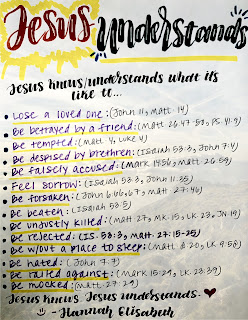 Jesus Understands
Jesus knows/understands what its
like to...
• Lose a loved one: (John 11, Matt. 14)
• Be betrayed by a friend: (Matt. 26:47-56, PS. 41:9)
• Be tempted: (Matt. 4, Luke 4)
• Be despised by brethren: (Isaiah 53:3, John 7:4)
• Be falsely accused: (Mark 14:56, Matt. 26:59)
• Feel sorrow: (Isaiah 53:3, John 11:35)
• Be forsaken: (John 6:66,67, Matt. 27:46)
• Be beaten: (Isaiah 53:5)
• Be unjustly killed: (Matt 27, Mk. 15, LK. 23, JN 19)
• Be rejected: (IS. 53:3, Matt. 27:15-25)
• Be w/out a place to sleep: (Matt. 8:20, LK. 9:58)
• Be hated: (John 7:7)
• Be railed against: (Mark 15:29, LK. 23:39)
• Be mocked: (Matt. 27:29)
Jesus knows. Jesus understands.
- Hannah Elisabeth